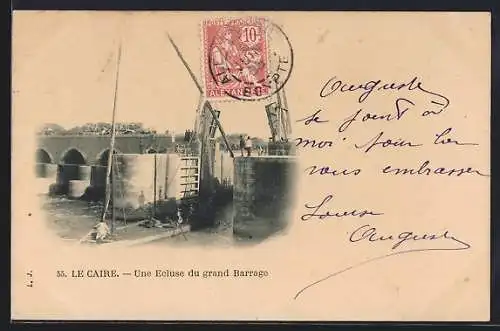 10c
ALEXANDRIE
ÉGYPTE
Auguste
se joint à
moi pour
vous embrasser
Louise
Auguste
55. LE CAIRE. — Une Ecluse du grand Barrage
L. J.